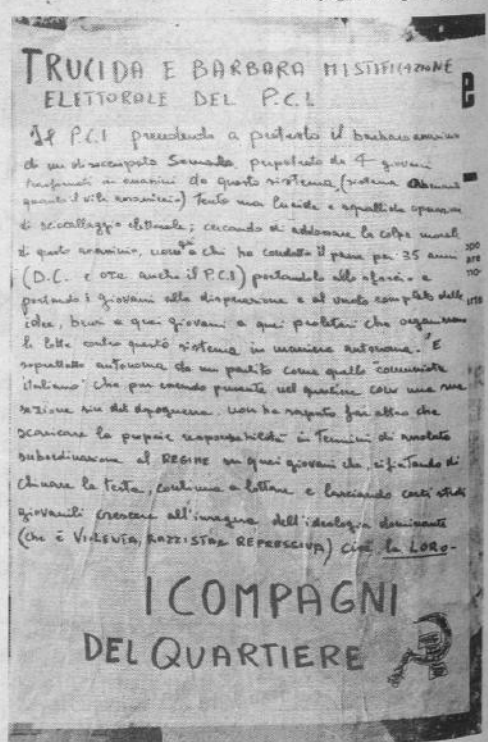 TRUCIDA E BARBARA MISTIFICAZIONE
ELETTORALE DEL P.C.I.
Il P.C.I prendendo a pretesto il barbaro assassinio
di un disoccupato Somalo, perpetrato da 4 giovani
trasformati in assassini da questo sistema, (sistema
quanto il vile assassinio) tenta una lucida e squallida operazione
di sciacallaggio elettorale; cercando di addossare la colpa morale
di questo assassinio, non a chi ha condotto il paese per 35 anni
(D.C. e ora anche il P.C.I) portandolo allo sfascio e
portando i giovani alla disperazione e al vuoto completo delle
idee, bensì a quei giovani a quei proletari che organizzano
le lotte contro questo sistema in maniera autonoma. E
soprattutto autonoma da un partito come quello "comunista
italiano" che pur essendo presente nel quartiere con una sua
sezione sin dal dopoguerra, non ha saputo far altro che
scaricare le proprie responsabilità in termini di
subordinazione al REGIME su quei giovani che, rifiutando di
chinare la testa, continuano a lottare e lasciando certi strati
giovanili crescere all'insegna dell'ideologia dominante
(che è VIOLENTA, RAZZISTA E REPRESSIVA) cioè la LORO-
I COMPAGNI
DEL QUARTIERE